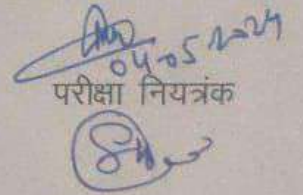 04-05-2024
परीक्षा नियत्रंक